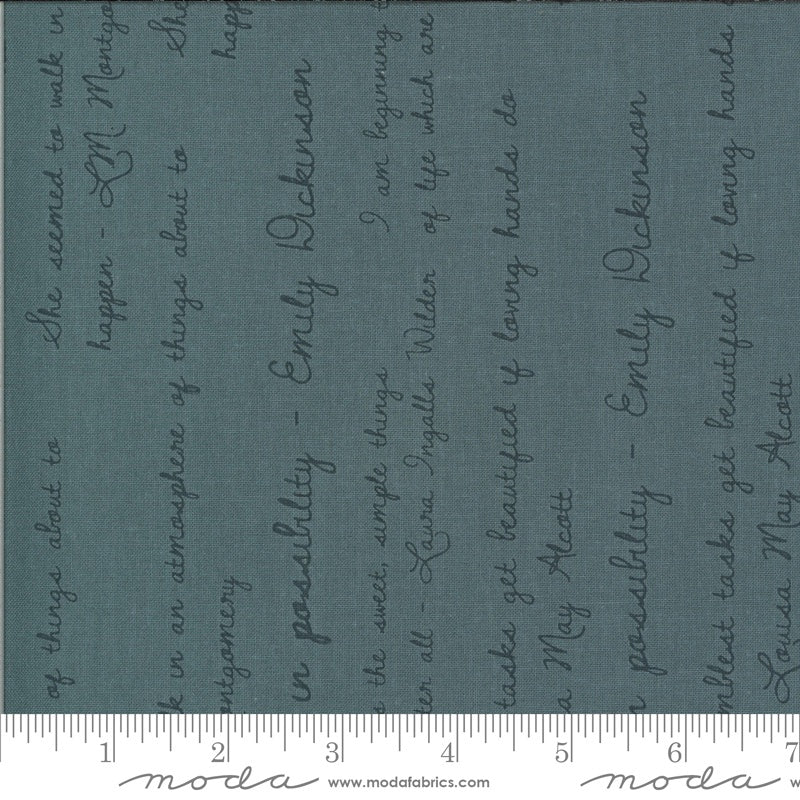 She seemed to walk in
happen - L.M. Montgo
of things about to
She
happ
k in an atmosphere of things about to
ontgomery
in possibility - Emily Dickinson
I am beginning
of life which are
s the sweet, simple things
ter all - Laura Ingalls Wilder
tasks get beautified if loving hands do
a May Alcott
n possibility - Emily Dickinson
mblest tasks get beautified if loving hands
Louisa May Alcott
1 2 3 4 5 6 7
moda www.modafabrics.com moda w